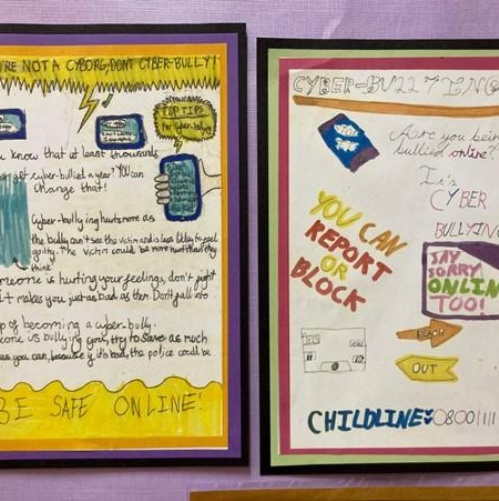 RE NOT A CYBORG, DON'T CYBER-BULLY!
TOP TIPS
For cyber-bullying
u know that at least thousands
cyber-bullied a year? YOU can
change that!
Cyber-bullying hurts more as
the bully can't see the victim and is less likely to feel
guilty. The victim could be more hurt than they
think!
meone is hurting your feelings, don't fight
it makes you just as bad as them. Don't fall into
p of becoming a cyber-bully.
eone is bullying you, try to save as much
as you can, because if it's bad, the police could be
BE SAFE ONLINE!
CYBER-BULLYING
Are you bein
bullied online?
It's
CYBER
BULLYING
YOU CAN
REPORT
OR
BLOCK
SAY
SORRY
ONLIN
TOO!
REACH
OUT
CHILDLINE: 08001111